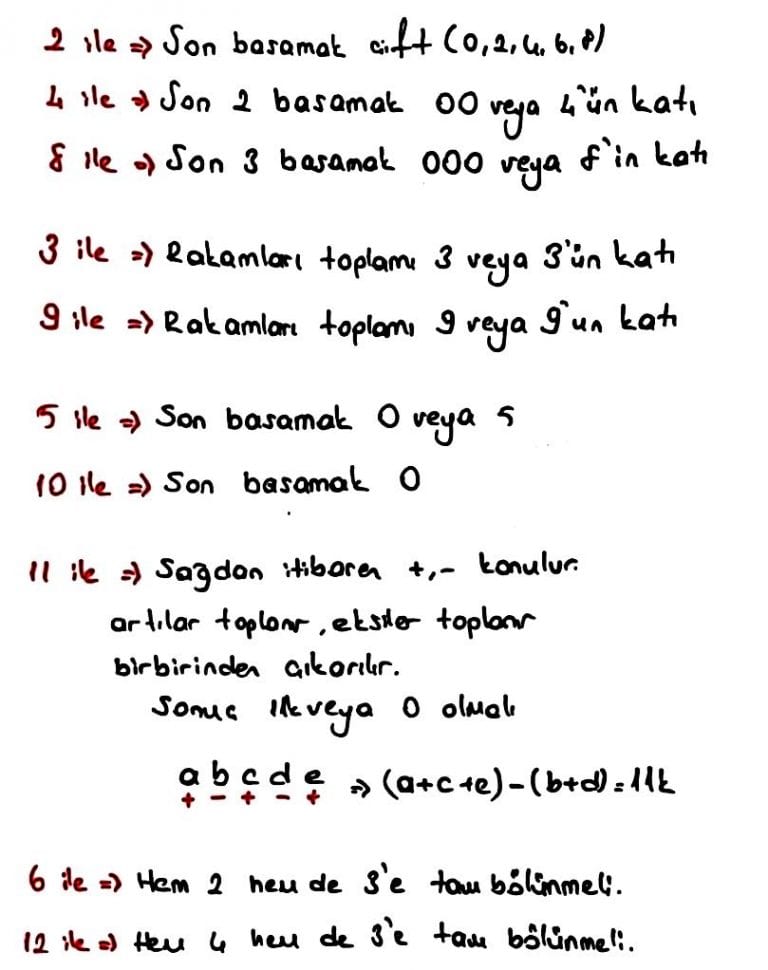 2 ile => Son basamak çift (0,2,4,6,8)
4 ile => Son 2 basamak 00 veya 4'ün katı
8 ile => Son 3 basamak 000 veya 8'in katı
3 ile => Rakamları toplamı 3 veya 3'ün katı
9 ile => Rakamları toplamı 9 veya 9'un katı
5 ile => Son basamak 0 veya 5
10 ile => Son basamak 0
11 ile => Sağdan itibaren +,- konulur.
artılar toplanır, eksiler toplanır
birbirinden çıkarılır.
Sonuç 11k veya 0 olmalı
a b c d e => (a+c+e)-(b+d)=11k
+ - + - +
6 ile => Hem 2 hem de 3'e tam bölünmeli.
12 ile => Hem 4 hem de 3'e tam bölünmeli.